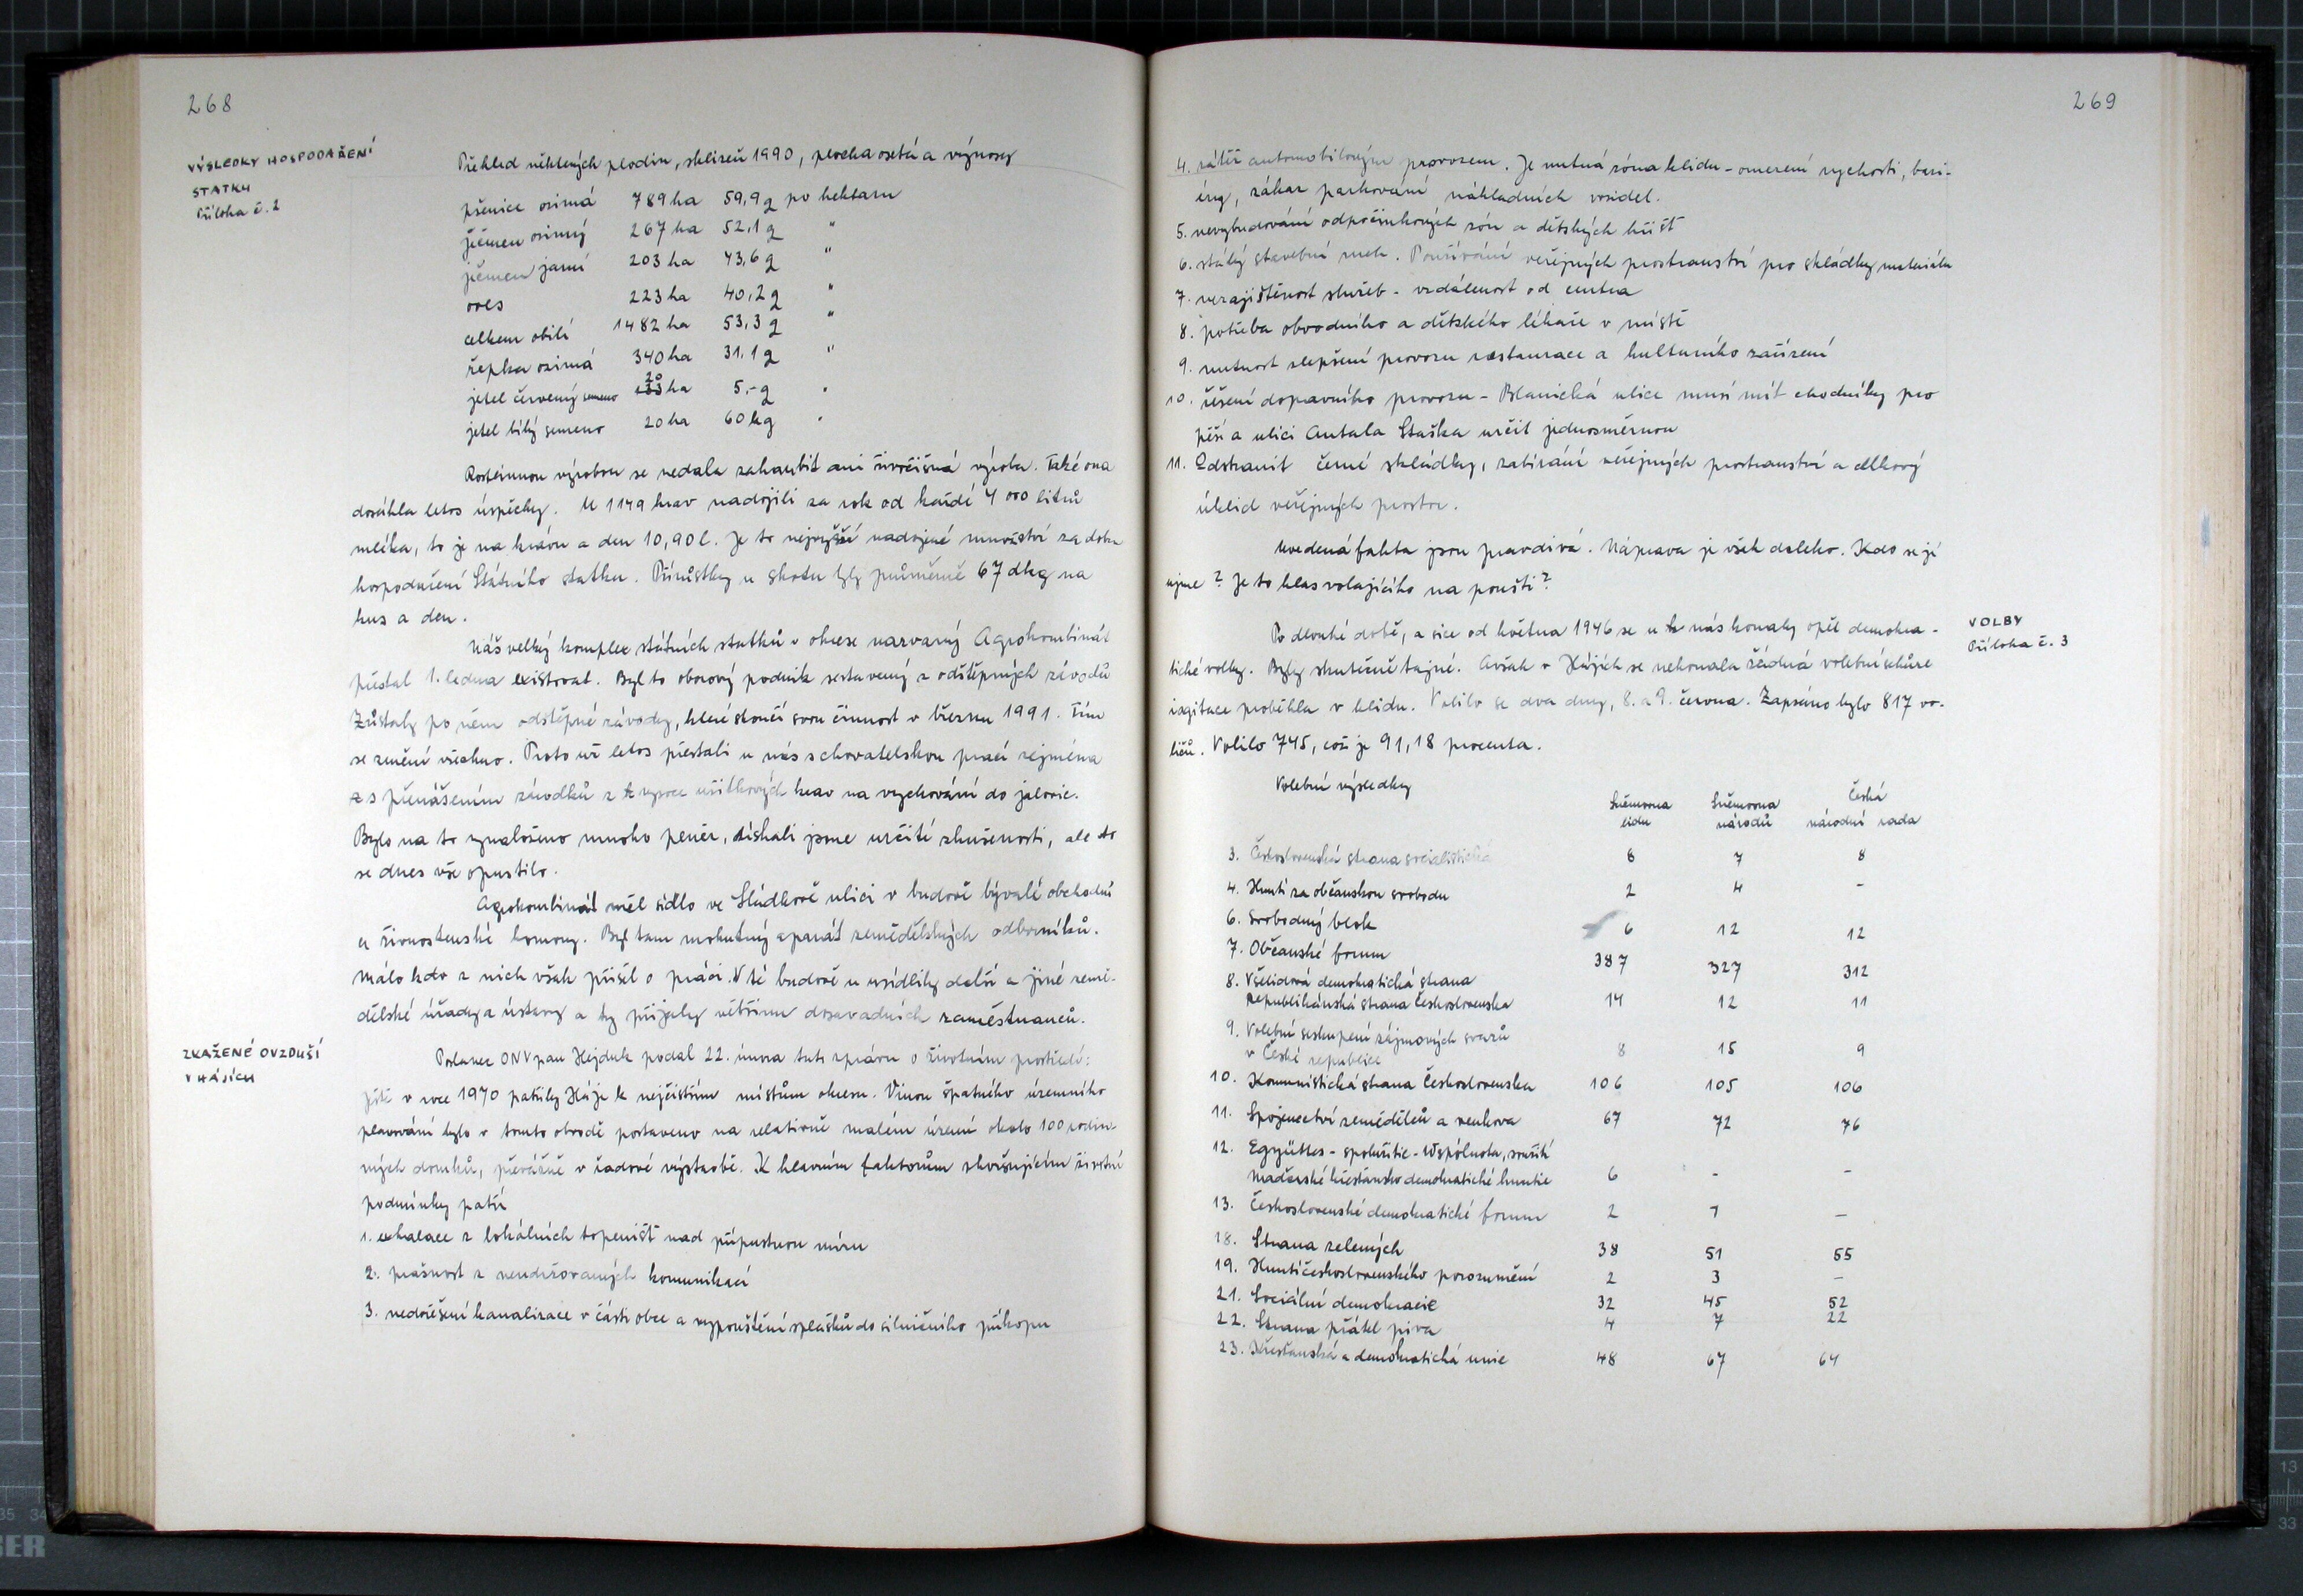 268
VÝSLEDKY HOSPODAŘENÍ
STATKU
Příloha č. 2
Přehled některých plodin, sklizeň 1990, plocha osetá a výnosy
pšenice ozimá 789 ha 59,9 q po hektaru
ječmen ozimý 267 ha 52,1 q "
ječmen jarní 203 ha 43,6 q "
oves 223 ha 40,2 q "
celkem obilí 1482 ha 53,3 q "
řepka ozimá 340 ha 31,1 q "
jetel červený semeno 20 ha 5,- q "
jetel bílý semeno 20 ha 60 kg "
Rostlinnou výrobou se nedala zahanbit ani živočišná výroba. Také ona
dosáhla letos úspěchy. U 1149 krav nadojili za rok od každé 4 000 litrů
mléka, to je na krávu a den 10,90 l. Je to nejvyšší nadojené množství za dobu
hospodaření Státního statku. Přírůstky u skotu byly průměrně 67 dkg na
kus a den.
Náš velký komplex státních statků v okrese nazvaný Agrokombinát
přestal 1. ledna existovat. Byl to oborový podnik sestavený z odštěpných závodů
Zůstaly po něm odštěpné závody, které skončí svou činnost v březnu 1991. Tím
se změní všechno. Proto už letos přestali u nás s chovatelskou prací zejména
s přenášením zárodků z vysoce užitkových krav na vychování do jalovic.
Bylo na to vynaloženo mnoho peněz, získali jsme určité zkušenosti, ale to
se dnes vše opustilo.
Agrokombinát měl sídlo ve Sládkově ulici v budově bývalé obchodní
a živnostenské komory. Byl tam mohutný aparát zemědělských odborníků.
Málo kdo z nich však přišel o práci. V té budově se usídlily další a jiné země-
dělské úřady a ústavy a ty přijaly většinu dosavadních zaměstnanců.
ZKAŽENÉ OVZDUŠÍ
V HÁJÍCH
Poslanec ONV pan Hejduk podal 22. února tuto zprávu o životním prostředí:
ještě v roce 1970 patřily Háje k nejčistším místům okresu. Vinou špatného územního
plánování bylo v tomto obvodě postaveno na relativně malém území okolo 100 rodin-
ných domků, převážně v řadové výstavbě. K hlavním faktorům zhoršujícím životní
podmínky patří
1. exhalace z lokálních topenišť nad přípustnou míru
2. prašnost z neudržovaných komunikací
3. nedořešení kanalizace v části obce a vypouštění splašků do silničního příkopu
269
4. zátěž automobilovým provozem. Je nutná zóna klidu - omezení rychlosti, bari-
éry, zákaz parkování nákladních vozidel.
5. nevybudování odpočinkových zón a dětských hřišť
6. stálý stavební ruch. Používání veřejných prostranství pro skládky materiálu
7. nezajištěnost služeb - vzdálenost od centra
8. potřeba obvodního a dětského lékaře v místě
9. nutnost zlepšení provozu restaurace a kulturního zařízení
10. řešení dopravního provozu - Blanická ulice musí mít chodníky pro
pěší a ulici Antala Staška určit jednosměrnou
11. Odstranit černé skládky, zabírání veřejných prostranství a celkový
úklid veřejných prostor.
Uvedená fakta jsou pravdivá. Náprava je však daleko. Kdo se jí
ujme? Je to hlas volajícího na poušti?
VOLBY
Příloha č. 3
Po dlouhé době, a sice od května 1946 se u nás konaly opět demokra-
tické volby. Byly skutečně tajné. Avšak v Hájích se nekonala žádná volební schůze
i agitace proběhla v klidu. Volilo se dva dny, 8. a 9. června. Zapsáno bylo 817 vo-
ličů. Volilo 745, což je 91,18 procenta.
Volební výsledky
Sněmovna lidu Sněmovna národů Česká národní rada
3. Československá strana socialistická 8 7 8
4. Hnutí za občanskou svobodu 2 4 -
6. Svobodný blok 6 12 12
7. Občanské forum 387 327 312
8. Všelidová demokratická strana
Republikánská strana Československa 14 12 11
9. Volební seskupení zájmových svazů
v České republice 8 15 9
10. Komunistická strana Československa 106 105 106
11. Spojenectví zemědělců a venkova 67 72 76
12. Együttes - spolužitie - Wspólnota, soužití
Maďarské křesťansko demokratické hnutie 6 - -
13. Československé demokratické forum 2 1 -
18. Strana zelených 38 51 55
19. Hnutí československého porozumění 2 3 -
21. Sociální demokracie 32 45 52
22. Strana přátel piva 4 7 22
23. Křesťanská a demokratická unie 48 67 64